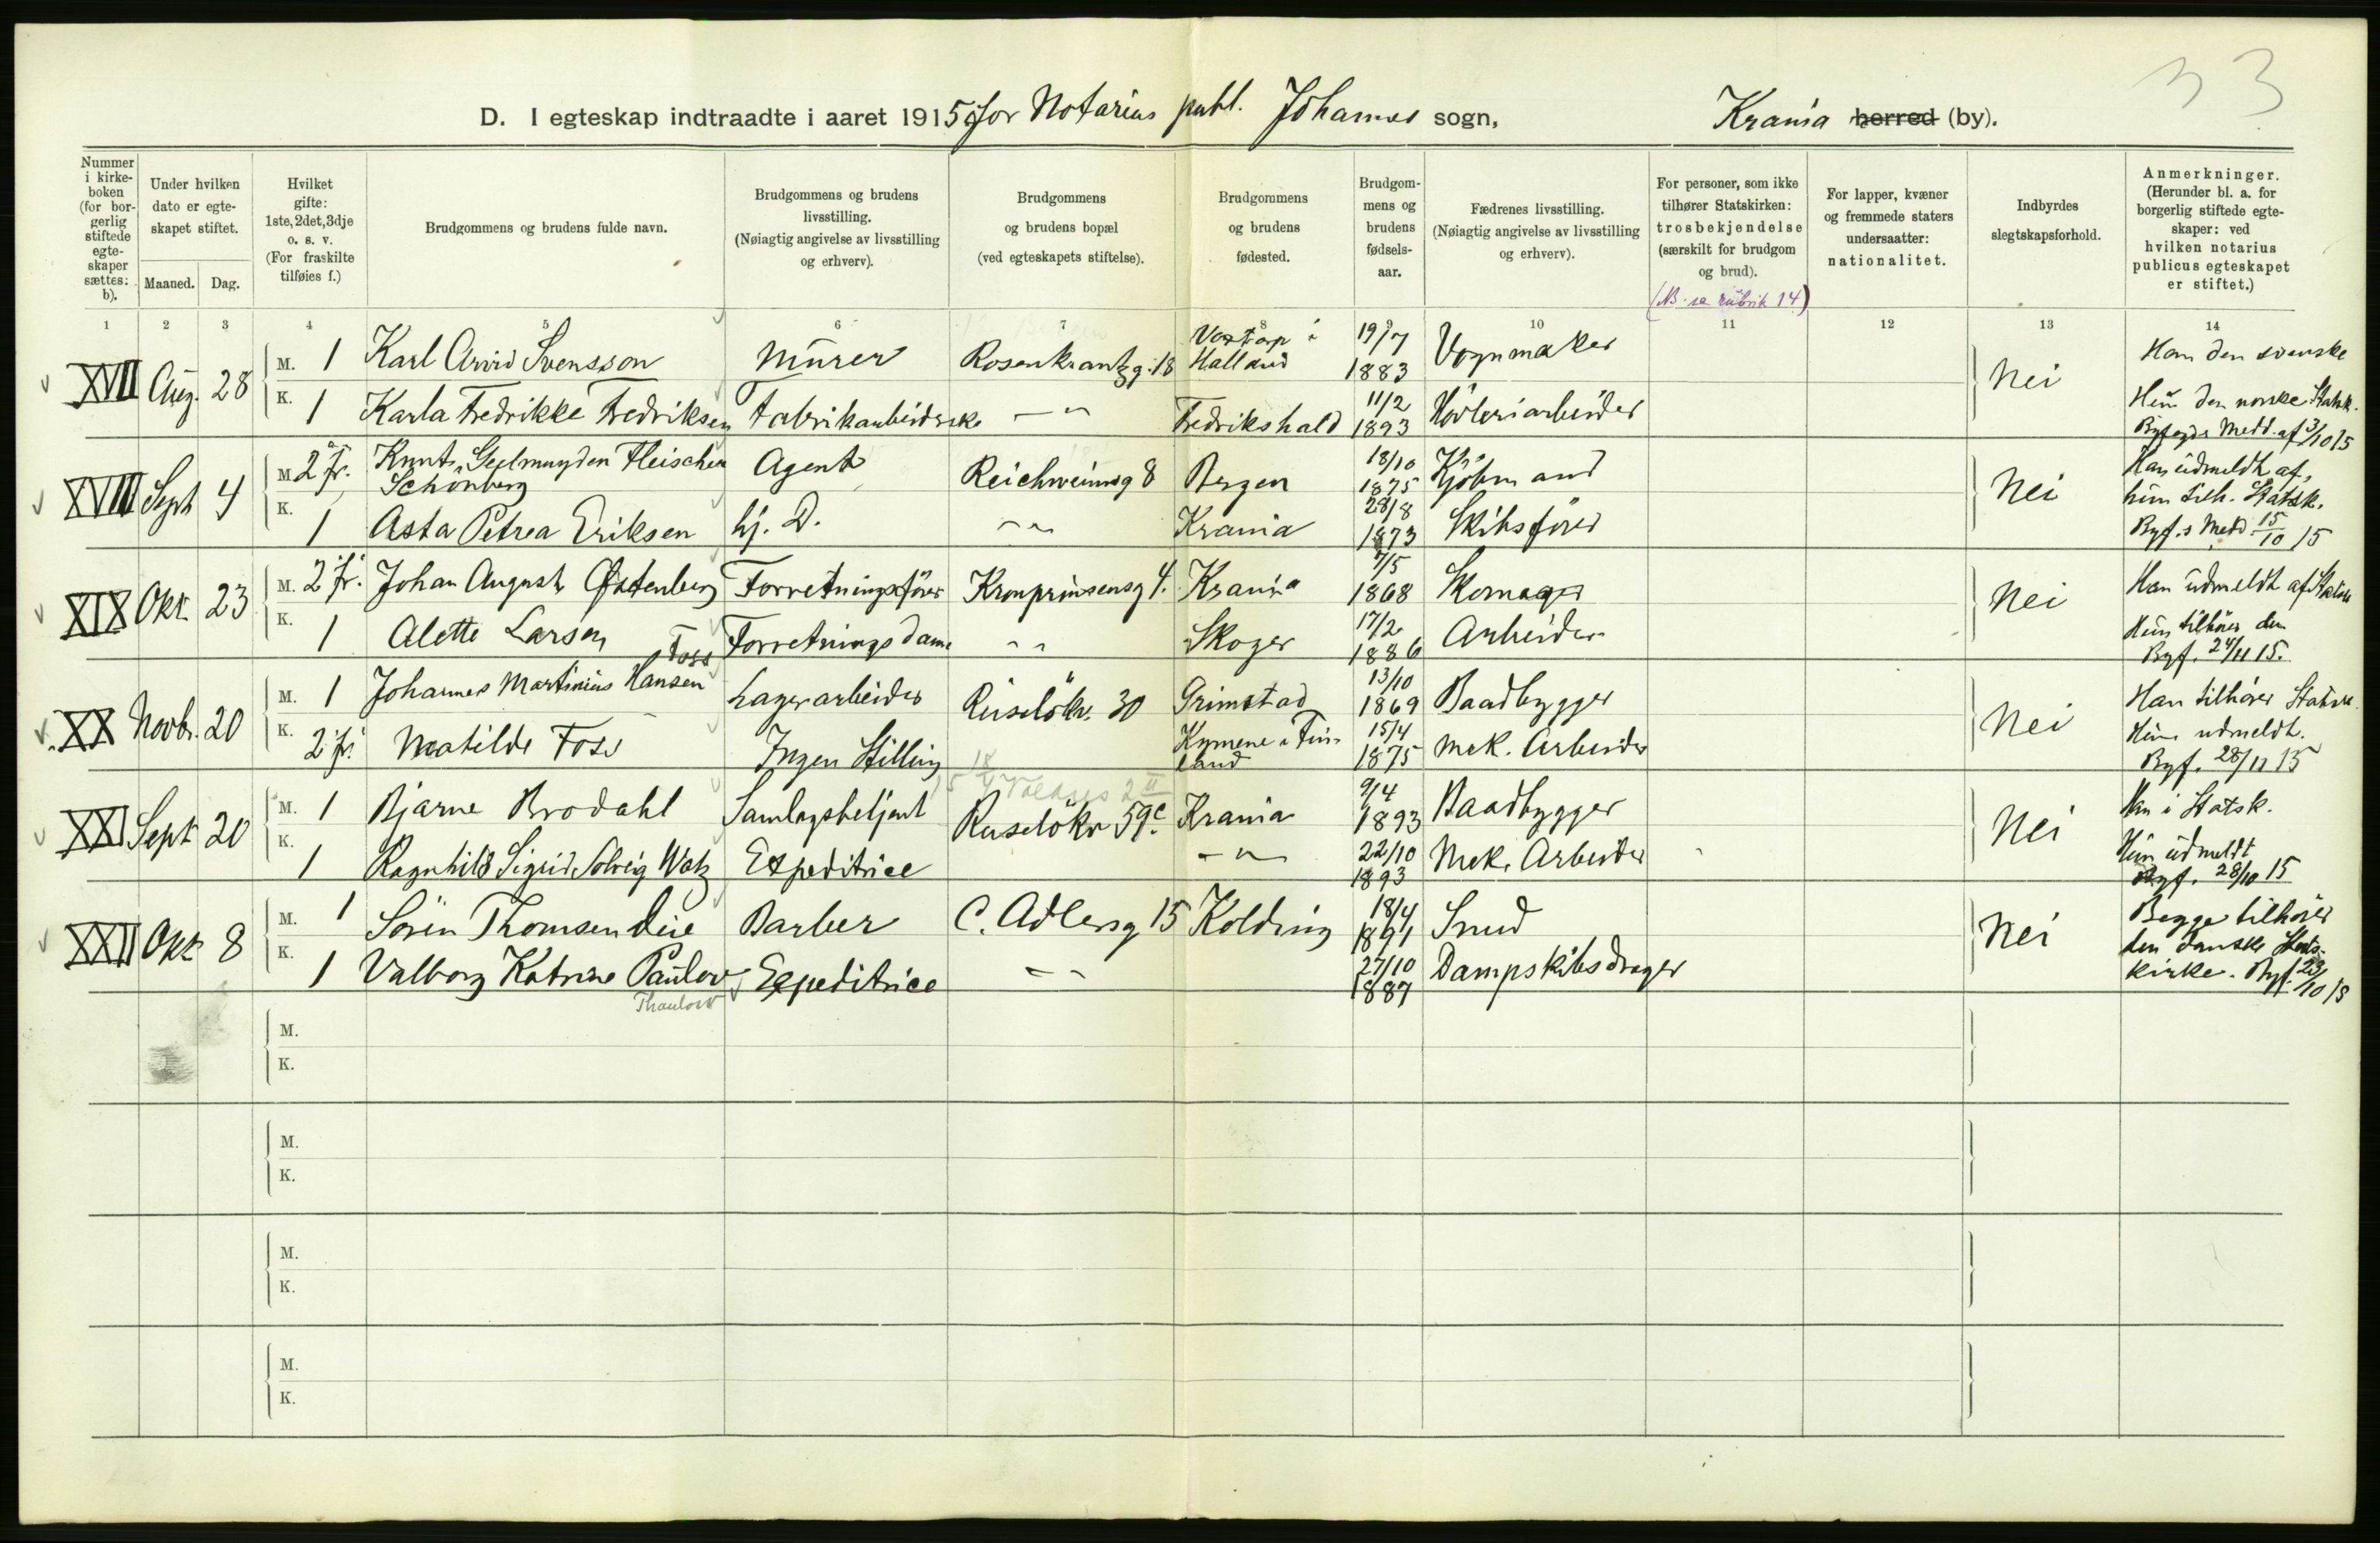 33
D. I egteskap indtraadte i aaret 1915 for Notarius publ. Johannes sogn, Krania herred (by).
Nummer i kirke-boken (for bor-gerlig stiftede egte-skaper sættes: b).
Under hvilken dato er egte-skapet stiftet.
Maaned. Dag.
Hvilket gifte: 1ste, 2det, 3dje o. s. v. (For fraskilte tilføies f.)
Brudgommens og brudens fulde navn.
Brudgommens og brudens livsstilling. (Nøiagtig angivelse av livsstilling og erhverv).
Brudgommens og brudens bopæl (ved egteskapets stiftelse).
Brudgommens og brudens fødested.
Brudgom-mens og brudens fødsels-aar.
Fædrenes livsstilling. (Nøiagtig angivelse av livsstilling og erhverv).
For personer, som ikke tilhører Statskirken: trosbekjendelse (særskilt for brudgom og brud).
(NB. se rubrik 14)
For lapper, kvæner og fremmede staters undersaatter: nationalitet.
Indbyrdes slegtskapsforhold.
Anmerkninger. (Herunder bl. a. for borgerlig stiftede egte-skaper: ved hvilken notarius publicus egteskapet er stiftet.)
1 2 3 4 5 6 7 8 9 10 11 12 13 14
XVII Aug. 28 M. 1 Karl Arvid Svensson Murer Rosenkrantzg. 18 Vastorp i Halland 19/7 1883 Vognmaker Nei Han den svenske
K. 1 Karla Fredrikke Fredriksen Fabrikarbeiderske — " — Fredrikshald 11/2 1893 Hövleriarbeider Hun den norske Statsk.
Byfogds Medd. af 3/10 15
XVIII Sept 4 M. 2 fr. Knut Geelmuyden Fleischer Schönberg Agent Reichweinsg 8 Bergen 18/10 1875 Kjöbmand Nei Han udmeldt af,
K. 1 Asta Petrea Eriksen hj. D. — " — Krania 28/8 1873 Skibsförer hun tilh. Statsk.
Byf.s Medd 15/10 15
XIX Okt. 23 M. 2 fr. Johan August Østenberg Forretningsförer Kronprinsensg 4. Krania 7/5 1868 Skomager Nei Han udmeldt af Statsk
K. 1 Alette Larsen Forretningsdame — " — Skoger 17/2 1886 Arbeider Hun tilhörer den
Byf. 24/11 15.
XX Novbr. 20 M. 1 Johannes Martinius Hansen Foss Lagerarbeider Ruselökv. 30 Grimstad 13/10 1869 Baadbygger Nei Han tilhörer Statsk.
K. 2 fr. Matilde Foss Ingen Stilling Kymene i Finland 15/4 1875 Mek. Arbeider Hun udmeldt.
Byf. 28/11 15
XXI Sept 20 M. 1 Bjarne Brodahl Samlagsbetjent Ruselökv 59c. Krania 9/4 1893 Baadbygger Nei Han i Statsk.
K. 1 Ragnhild Sigrid Solveig Watz Expeditrice — " — 22/10 1893 Mek. Arbeider Hun udmeldt
Byf. 28/10 15
XXII Okt. 8 M. 1 Sörin Thomsen Lüe Barber C. Adlersg 15 Kolding 18/4 1891 Smed Nei Begge tilhörer
K. 1 Valborg Katrine Paulov Expeditrice — " — 27/10 1887 Dampskibsdrager den danske Stats-
Thaulow kirke. Byf. 23/10 15
M.
K.
M.
K.
M.
K.
M.
K.